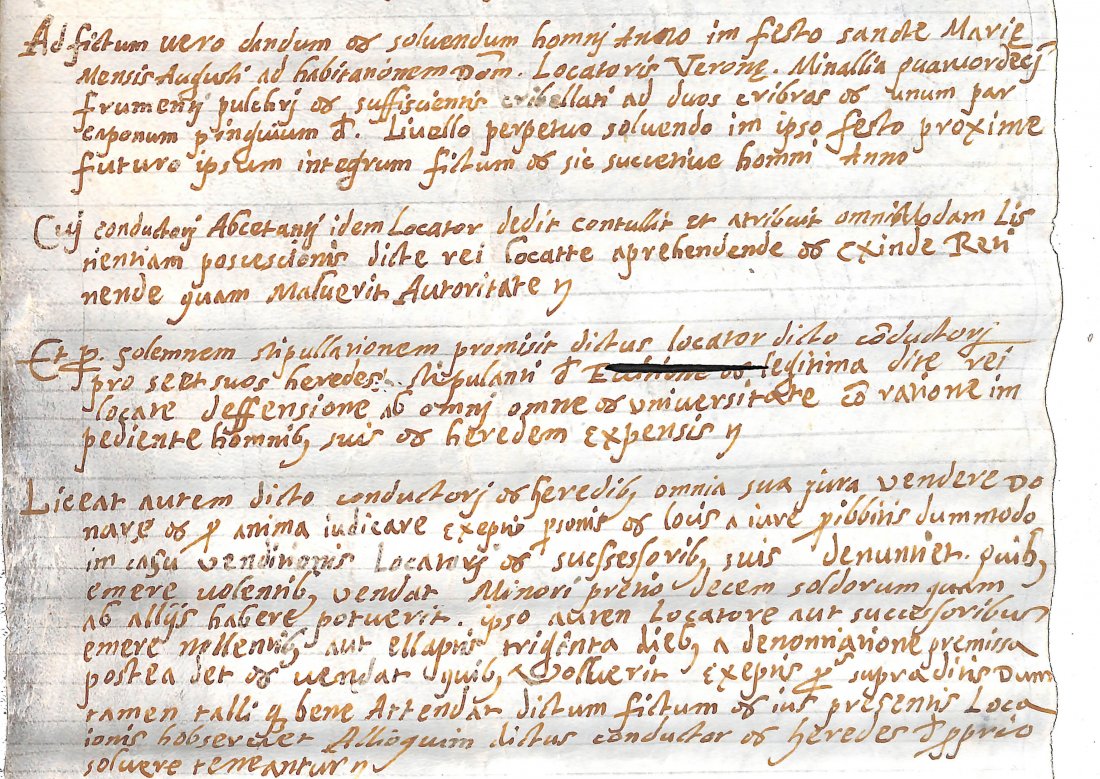 Ad fictum vero dandum et solvendum homnj Anno im festo sancte Marie
Mensis Augusti ad habitationem Dom. Locatoris Verone. Minallia quatuordecj
frumentj pulchrj et suffiscientis cribellati ad duos cribros et unum par
caponum pinguium Livello perpetuo solvendo im ipso festo proxime
futuro ipsum integrum fictum et sic sucetiue homni Anno
Cuj conductorj Abcetantj idem Locator dedit contullit et atribuit omniModam Lis
tientiam poscescionis dicte rei locatte aprehendende et exinde Reti
nende quam Maluerit Autoritate
Et p. solemnem stipullationem promisit dictus locator dicto cōductorj
pro se et suos heredes stipulanti legitima dite rei
locate deffensione ab omnj omne et universitate cō ratione im
pediente homnib, suis et heredem expensis
Liceat autem dicto conductorj et heredib, omnia sua jura vendere Do
nare et p anima iudicare exeptis psonis et locis a iure pibbitis dummodo
im casu venditionis Locatorj et sucsessorib, suis denuntiet. quib,
emere uolentib, vendat Minori pretio decem soldorum quam
ab allijs habere potuerit. ipso autem Locatore aut successoribus
emere nollentib, aut ellaptis triginta dieb, a denonnatione premissa
postea det et uendat quib, voluerit exeptis p supraditis Dum
tamen talli q bene Attendat dictum fictum et ius presentis Loca
ionis hobservet Allioquim dictus conductor et heredes pprio
soluere teneantur